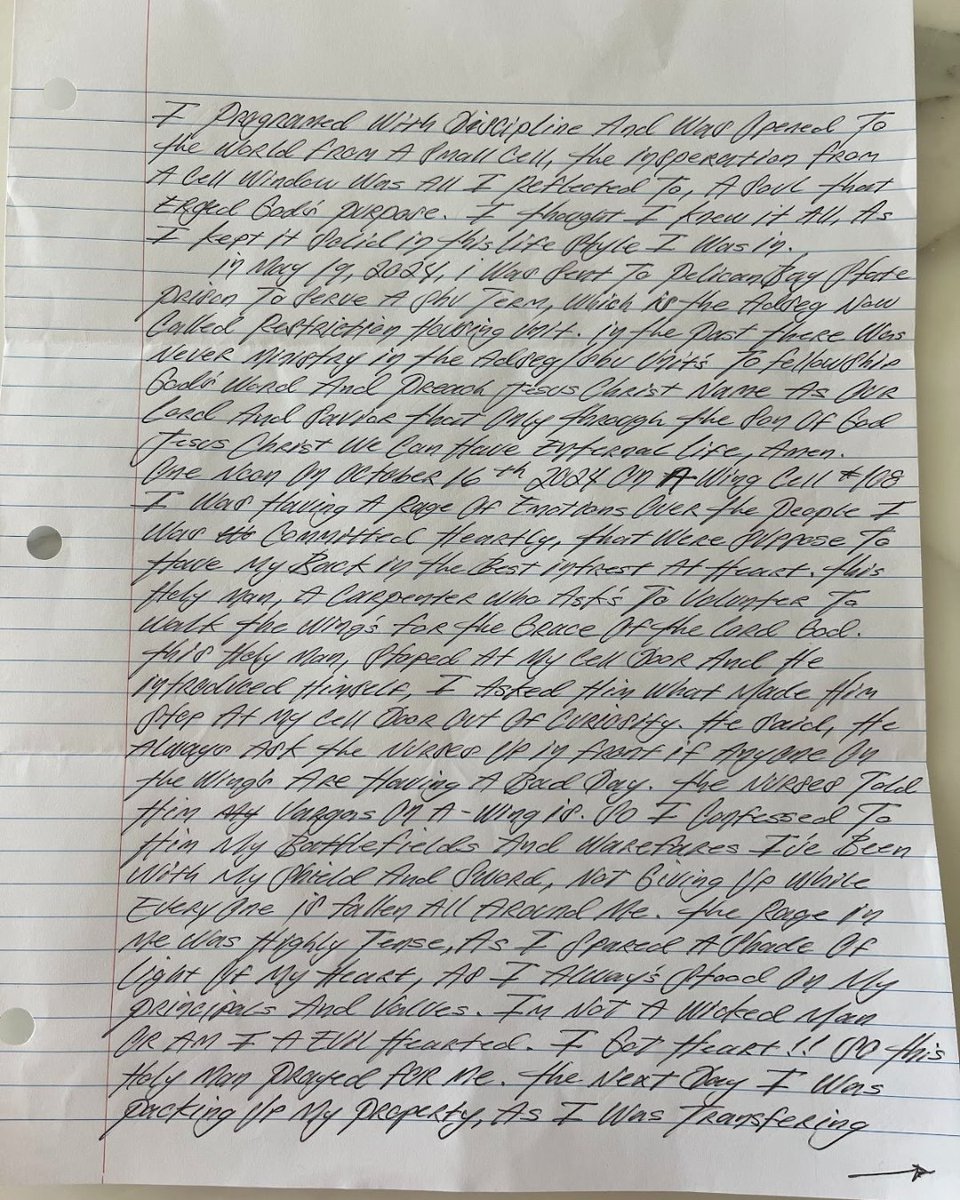 I Programed With Discipline And Was Opened To
the World From A Small Cell, the insperation from
A Cell Window Was All I Reflected To, A Soul that
Erged God's purpose. I thought I knew it All, As
I kept it Solid in this life Style I Was in.
in May 19, 2024, i Was Sent To Pelican Bay State
prison To Serve A Shu Term, Which is the Adseg Now
Called Restriction Housing Unit. in the Past there Was
Never Ministry in the Adseg/Shu Unit's To fellowship
God's Word And Preach Jesus Christ Name As Our
Lord And Savior that Only through the Son Of God
Jesus Christ We Can Have Enternal Life, Amen.
One Noon On October 16th 2024 On A Wing Cell #108
I Was Having A Rage Of Emotions Over the People I
Was Committed Heartly, that Were Suppose To
Have My Back in the Best intrest At Heart. this
Holy Man, A Carpenter Who Ask's To Volunter To
Walk the Wing's for the Grace Of the Lord God.
this Holy Man, Stoped At My Cell Door And He
introduced Himself, I Asked Him What Made Him
Stop At My Cell Door Out Of Curiosity. He Said, He
Always Ask the Nurses Up in front if Anyone On
the Wing's Are Having A Bad Day. the Nurses Told
Him Vargas On A-Wing is. So I Confessed To
Him My Battlefields And Warefares I've Been
With My Shield And Sword, Not Giving Up While
Every One is fallen All Around Me. the Rage in
Me Was Highly Tense, As I Spared A Shade Of
Light Of My Heart, As I Always Stood On My
principals And Values. I'm Not A Wicked Man
OR AM I A Evil Hearted. I Got Heart!! So this
Holy Man prayed FOR Me. the Next Day I Was
packing Up My property, As I Was Transfering